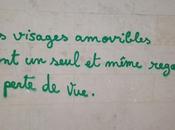 s visages amovibles
nt un seul et même rega
perte de vue.